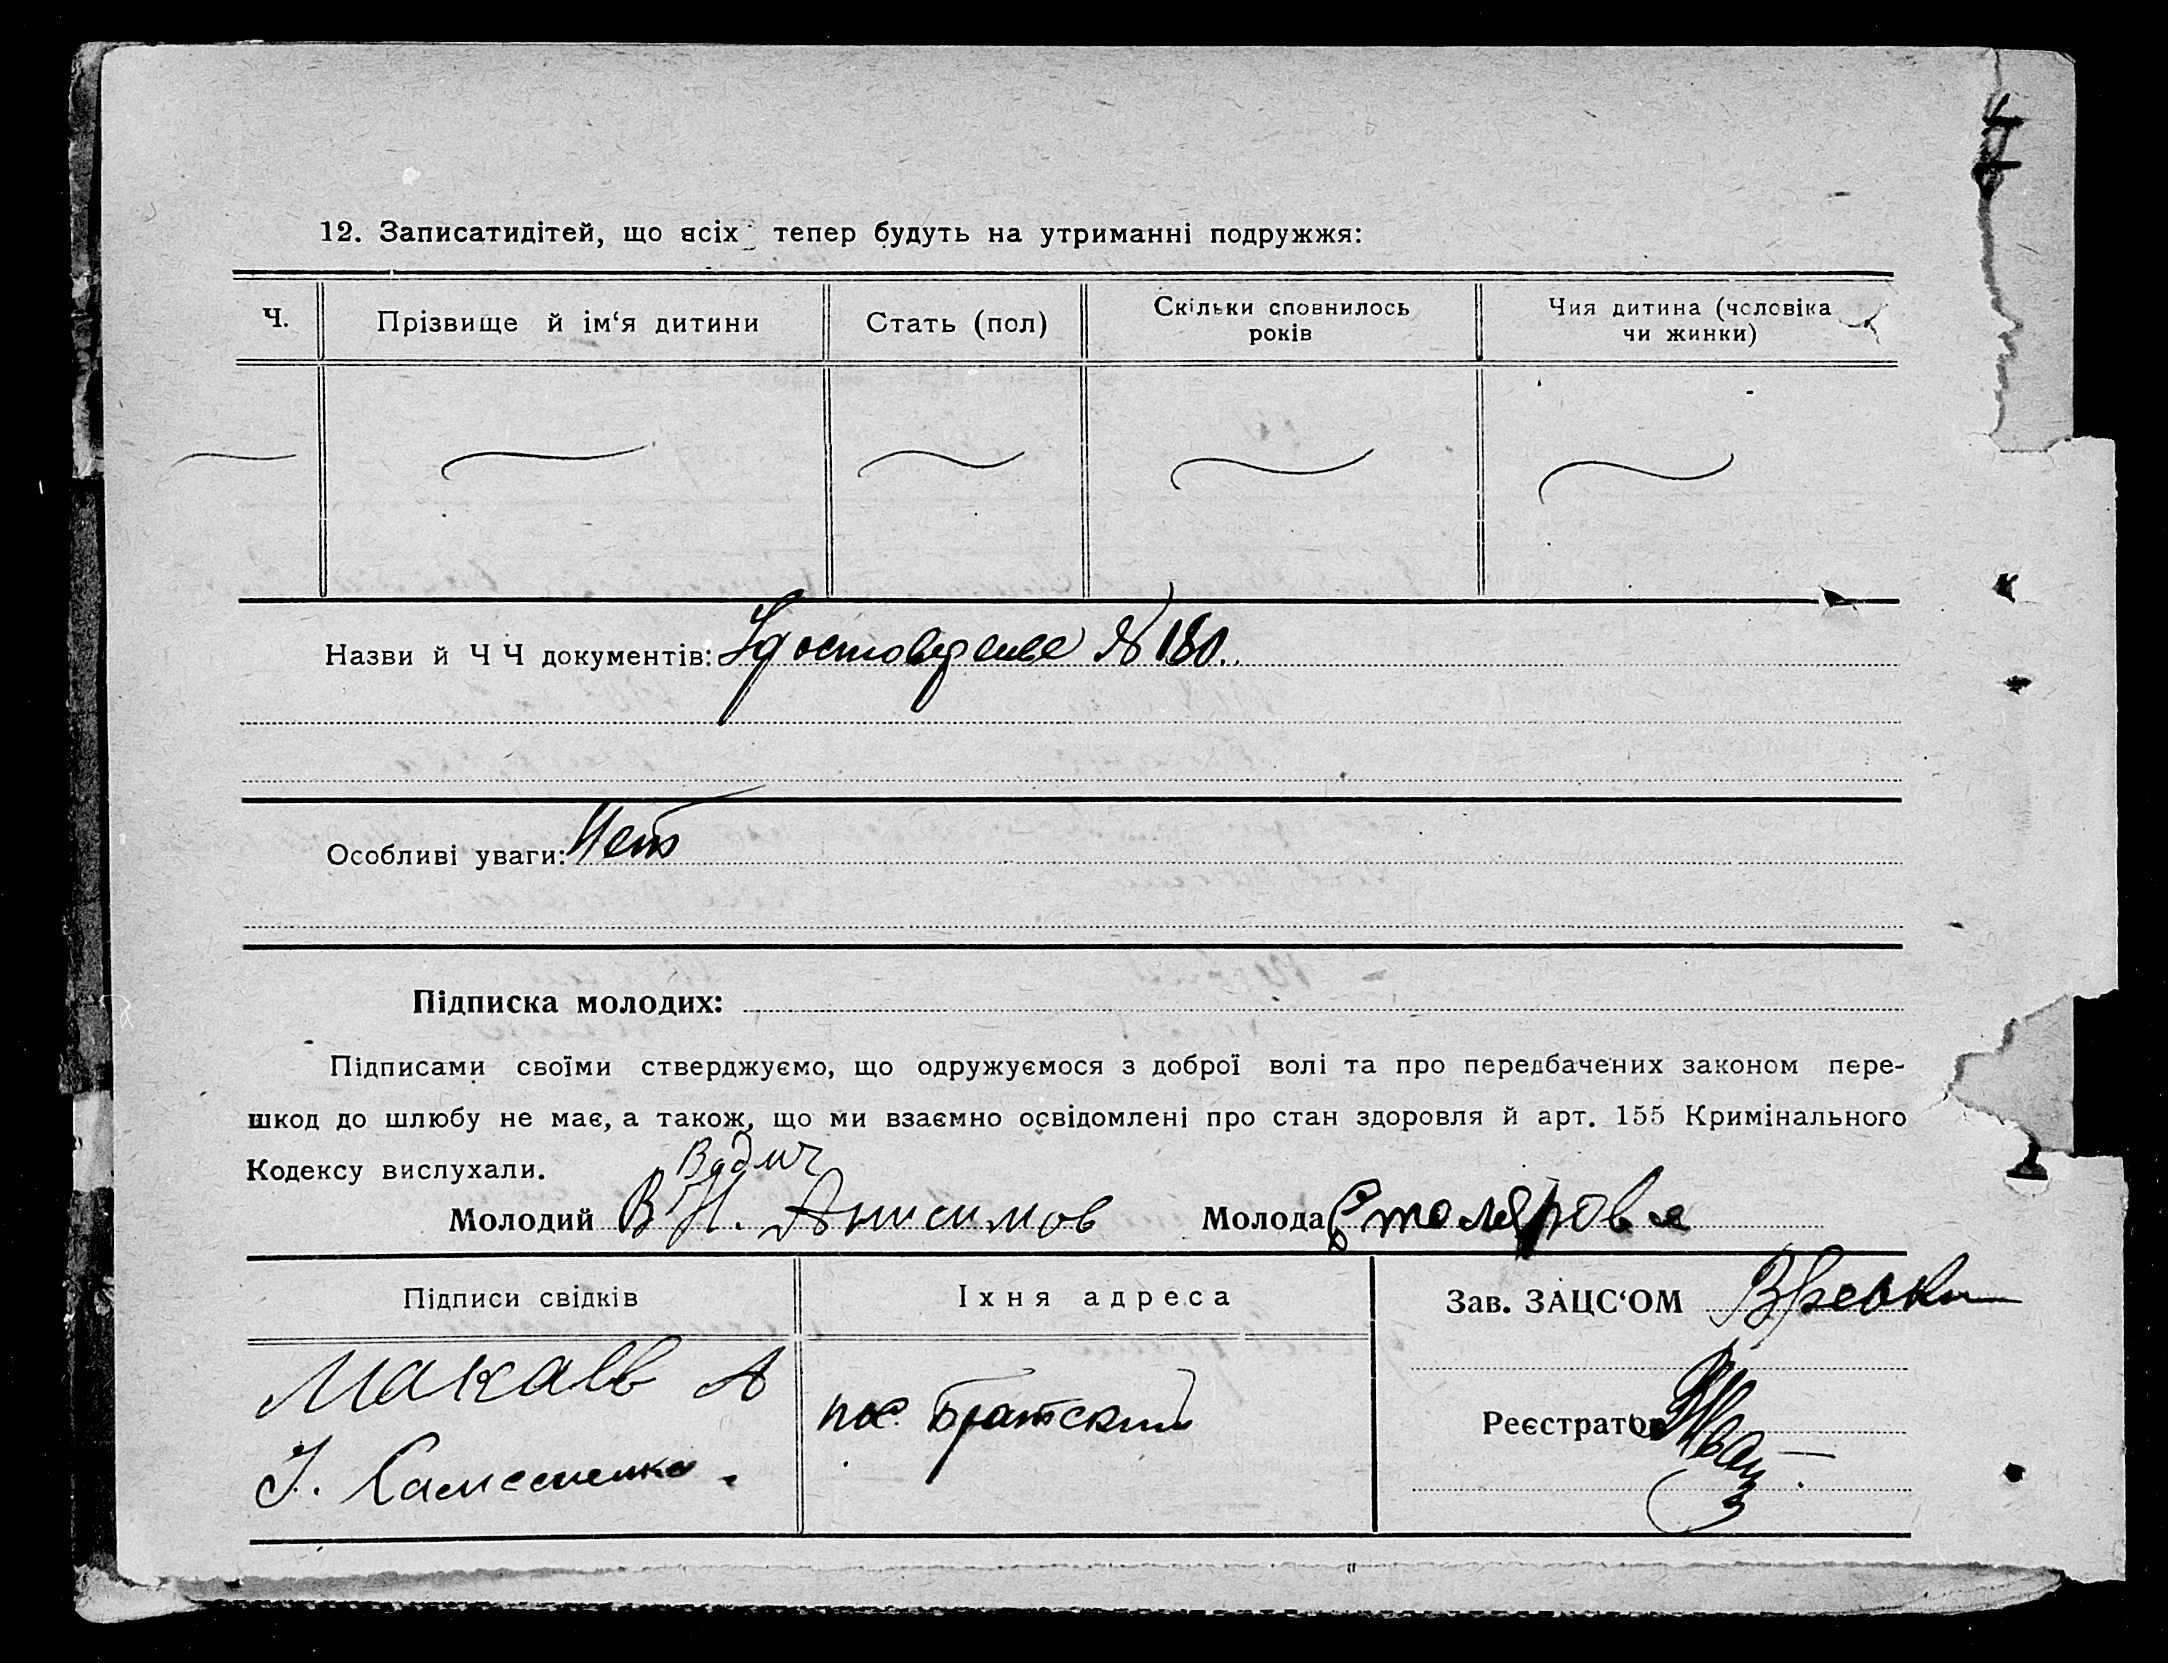 12. Записатидітей, що всіх тепер будуть на утриманні подружжя:
Ч.
Прізвище й ім‘я дитини
Стать (пол)
Скільки сповнилось
років
Чия дитина (чоловіка
чи жинки)
Назви й Ч Ч документів: Удостоверение № 180.
Особливі уваги: Нет
Підписка молодих:
Підписами своїми стверджуємо, що одружуємося з доброї волі та про передбачених законом пере-
шкод до шлюбу не має, а також, що ми взаємно освідомлені про стан здоровля й арт. 155 Кримінального
Кодексу вислухали.
Молодий В Н. Анисимов Молода Столярова
Підписи свідків
Іхня адреса
Зав. ЗАЦС‘ОМ
Макаев А
пос. Братский
Реєстратор